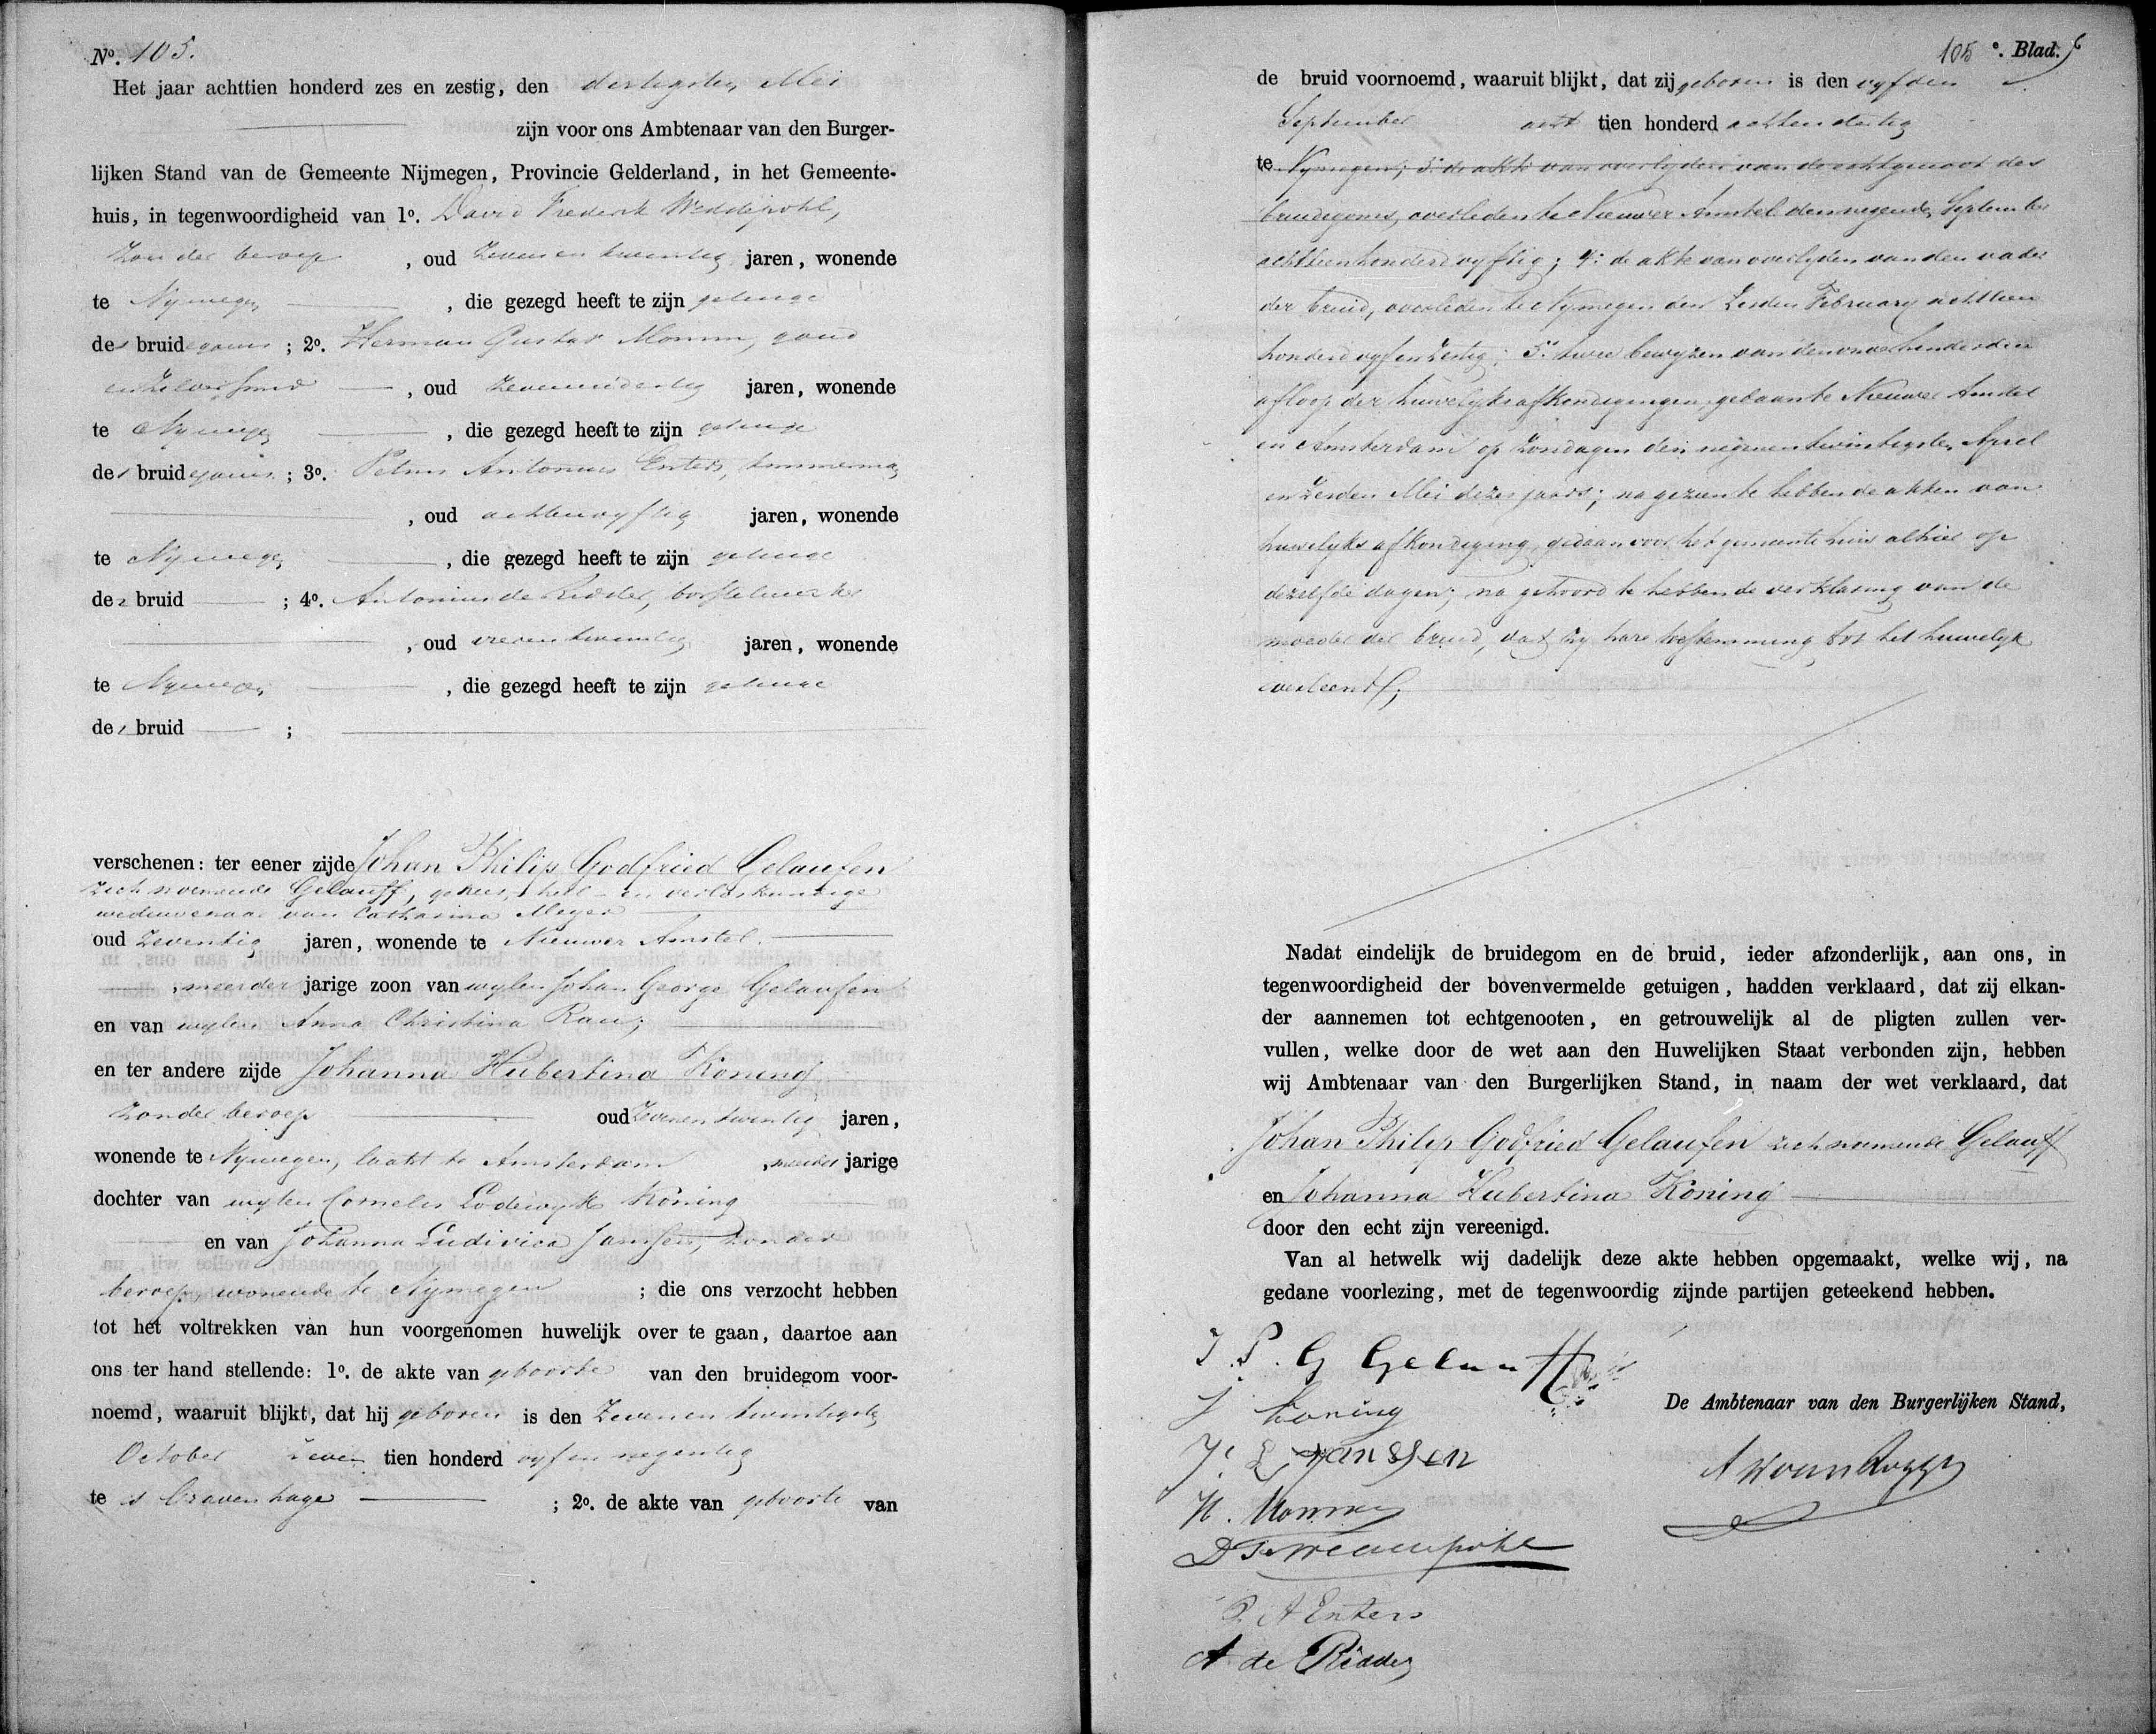 No. 105.
Het jaar achttien honderd zes en zestig, den dertigsten Mei
zijn voor ons Ambtenaar van den Burger-
lijken Stand van de Gemeente Nijmegen, Provincie Gelderland, in het Gemeente-
huis, in tegenwoordigheid van 1o. David Frederik Weddepohl,
zonder beroep, oud zevenentwintig jaren, wonende
te Nymegen, die gezegd heeft te zijn getuige
des bruidegoms; 2o. Herman Gustav Momm, goud
en zilversmid, oud zevenendertig jaren, wonende
te Nymegen, die gezegd heeft te zijn getuige
des bruidegoms; 3o. Petrus Antonius Enters, timmerman
, oud achtenvyftig jaren, wonende
te Nymegen, die gezegd heeft te zijn getuige
der bruid; 4o. Antonius de Ridder, borstelmaker
, oud vierentwintig jaren, wonende
te Nymegen, die gezegd heeft te zijn getuige
der bruid ;
verschenen: ter eener zijde Johan Philip Godfried Gelaufen
zich noemende Gelauff, genees, heel- en verloskundige
weduwenaar van Catharina Meyer
oud zeventig jaren, wonende te Nieuwer Amstel.
, meerder jarige zoon van wylen Johan George Gelaufen
en van wylen Anna Christina Rau;
en ter andere zijde Johanna Hubertina Koning
zonder beroep oud zevenentwintig jaren,
wonende te Nymegen, laatst te Amsterdam, meerder jarige
dochter van wylen Cornelis Lodewyk Koning
en van Johanna Ludivica Janssen, zonder
beroep, wonende te Nymegen; die ons verzocht hebben
tot het voltrekken van hun voorgenomen huwelijk over te gaan, daartoe aan
ons ter hand stellende: 1o. de akte van geboorte van den bruidegom voor-
noemd, waaruit blijkt, dat hij geboren is den zevenentwintigsten
October zeven tien honderd vyfennegentig
te 's Gravenhage; 2o. de akte van geboorte van
105e. Blad.
de bruid voornoemd, waaruit blijkt, dat zij geboren is den vyfden
September acht tien honderd achtendertig
te Nymegen; 3o. de akte van overlyden van de echtgenoot des
bruidegoms, overleden te Nieuwer Amstel den negenden September
achttienhonderd vyftig; 4o. de akte van overlyden van den vader
der bruid, overleden te Nymegen den zesden February achttien
honderd vyfenzestig; 5o. twee bewyzen van den onverhinderden
afloop der huwelyksafkondigingen, gedaan te Nieuwer Amstel
en Amsterdam op zondagen den negenentwintigsten April
en zesden Mei dezes jaars; na gezien te hebben de akten van
huwelyks afkondiging, gedaan voor het gemeentehuis alhier op
dezelfde dagen; na gehoord te hebben de verklaring van de
moeder der bruid, dat zy hare toestemming tot het huwelyk
verleent;
Nadat eindelijk de bruidegom en de bruid, ieder afzonderlijk, aan ons, in
tegenwoordigheid der bovenvermelde getuigen, hadden verklaard, dat zij elkan-
der aannemen tot echtgenooten, en getrouwelijk al de pligten zullen ver-
vullen, welke door de wet aan den Huwelijken Staat verbonden zijn, hebben
wij Ambtenaar van den Burgerlijken Stand, in naam der wet verklaard, dat
Johan Philip Godfried Gelaufen zich noemende Gelauff
en Johanna Hubertina Koning
door den echt zijn vereenigd.
Van al hetwelk wij dadelijk deze akte hebben opgemaakt, welke wij, na
gedane voorlezing, met de tegenwoordig zijnde partijen geteekend hebben.
J. P. G Gelauff
J Koning
J. L. Janssen
H. Momm
D F Weddepohl
P. A Enters
A de Ridder
De Ambtenaar van den Burgerlijken Stand,